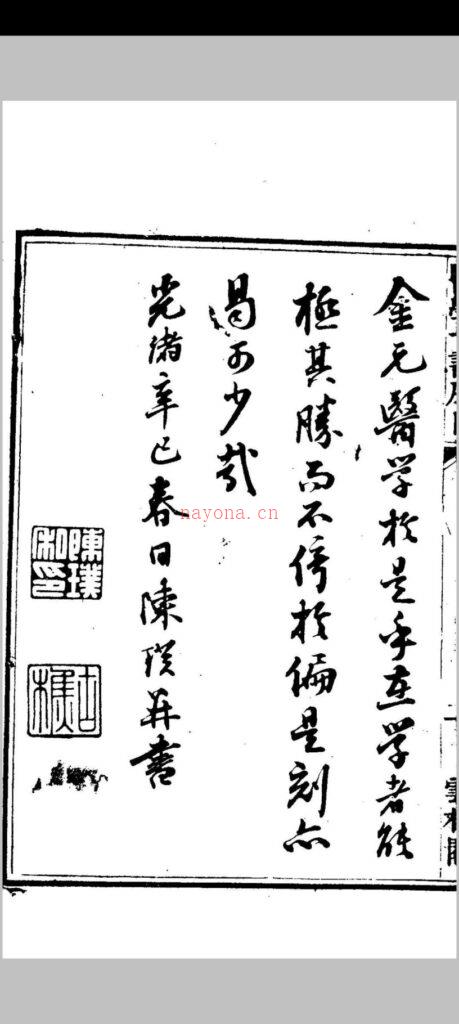 金元醫学於是乎在学者能
極其勝而不倚於偏是刻亦
曷可少哉
光緒辛巳春日陳璞并書
陳璞
古樵
nayona.cn